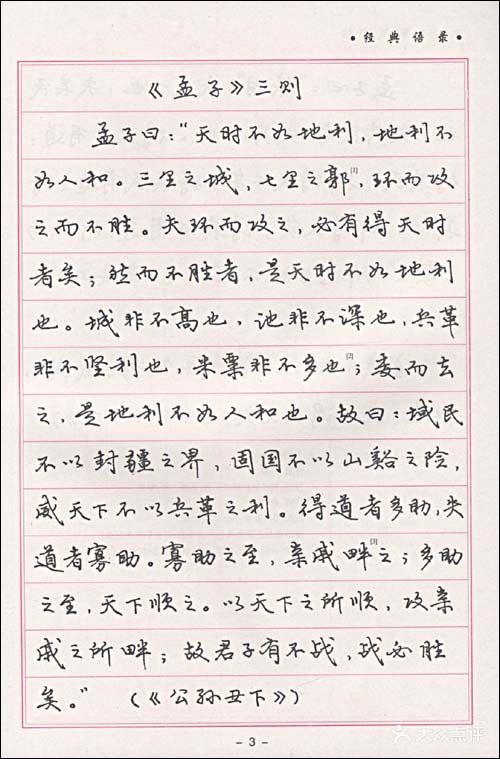 • 经典语录 •
《孟子》三则
孟子曰：“天时不如地利，地利不
如人和。三里之城，七里之郭[1]，环而攻
之而不胜。夫环而攻之，必有得天时
者矣；然而不胜者，是天时不如地利
也。城非不高也，池非不深也，兵革
非不坚利也，米粟非不多也[2]；委而去
之，是地利不如人和也。故曰：域民
不以封疆之界，固国不以山谿之险，
威天下不以兵革之利。得道者多助，失
道者寡助。寡助之至，亲戚畔[3]之；多助
之至，天下顺之。以天下之所顺，攻亲
戚之所畔；故君子有不战，战必胜
矣。”（《公孙丑下》）
- 3 -
大众点评